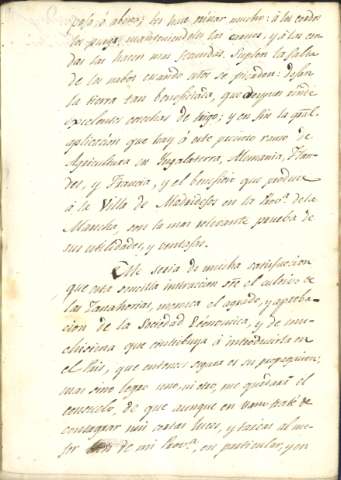 pasa, ò abono; los hace poner mucho: à los cerdos
los purga, manteniendoles las carnes, y à las cer-
das las hacen mas fecundas. Suplen la falta
de los nabos cuando estos se pierden: dejan
la tierra tan beneficiada, que
excelentes cosechas de trigo; y en fin la gral.
aplicacion que hay à este preciso ramo de
Agricultura en Ynglaterra, Alemania, Flan-
des, y Francia, y el beneficio que produce
à la Villa de en la Prov.ª de la
Mancha, son la mas relevante prueba de
sus utilidades, y ventajas.
Me seria de mucha satisfaccion
que esta sencilla instruccion sre el cultivo de
las Zanahorias, merezca el agrado, y aproba-
cion de la Sociedad Economica, y de mu-
chisima que contribuya à introducirla en
el Pais, que entonces segura es su propagacion;
mas sino logro uno, ni otro, me quedarà el
consuelo, de que aunque en
consagrar mis cortas luces, y tareas al me-
jor de mi Prov.ª en particular, y en